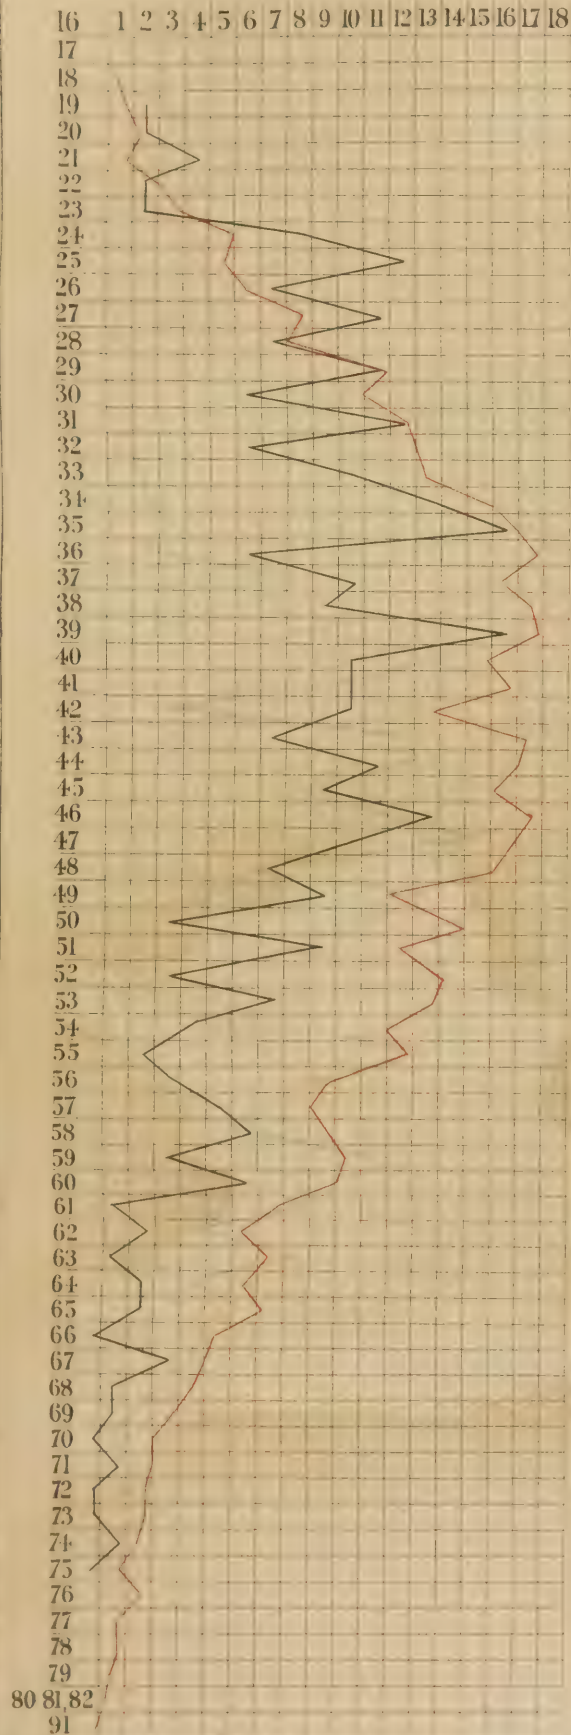 16 1 2 3 4 5 6 7 8 9 10 11 12 13 14 15 16 17 18
17
18
19
20
21
22
23
24
25
26
27
28
29
30
31
32
33
34
35
36
37
38
39
40
41
42
43
44
45
46
47
48
49
50
51
52
53
54
55
56
57
58
59
60
61
62
63
64
65
66
67
68
69
70
71
72
73
74
75
76
77
78
79
80 81,82
91